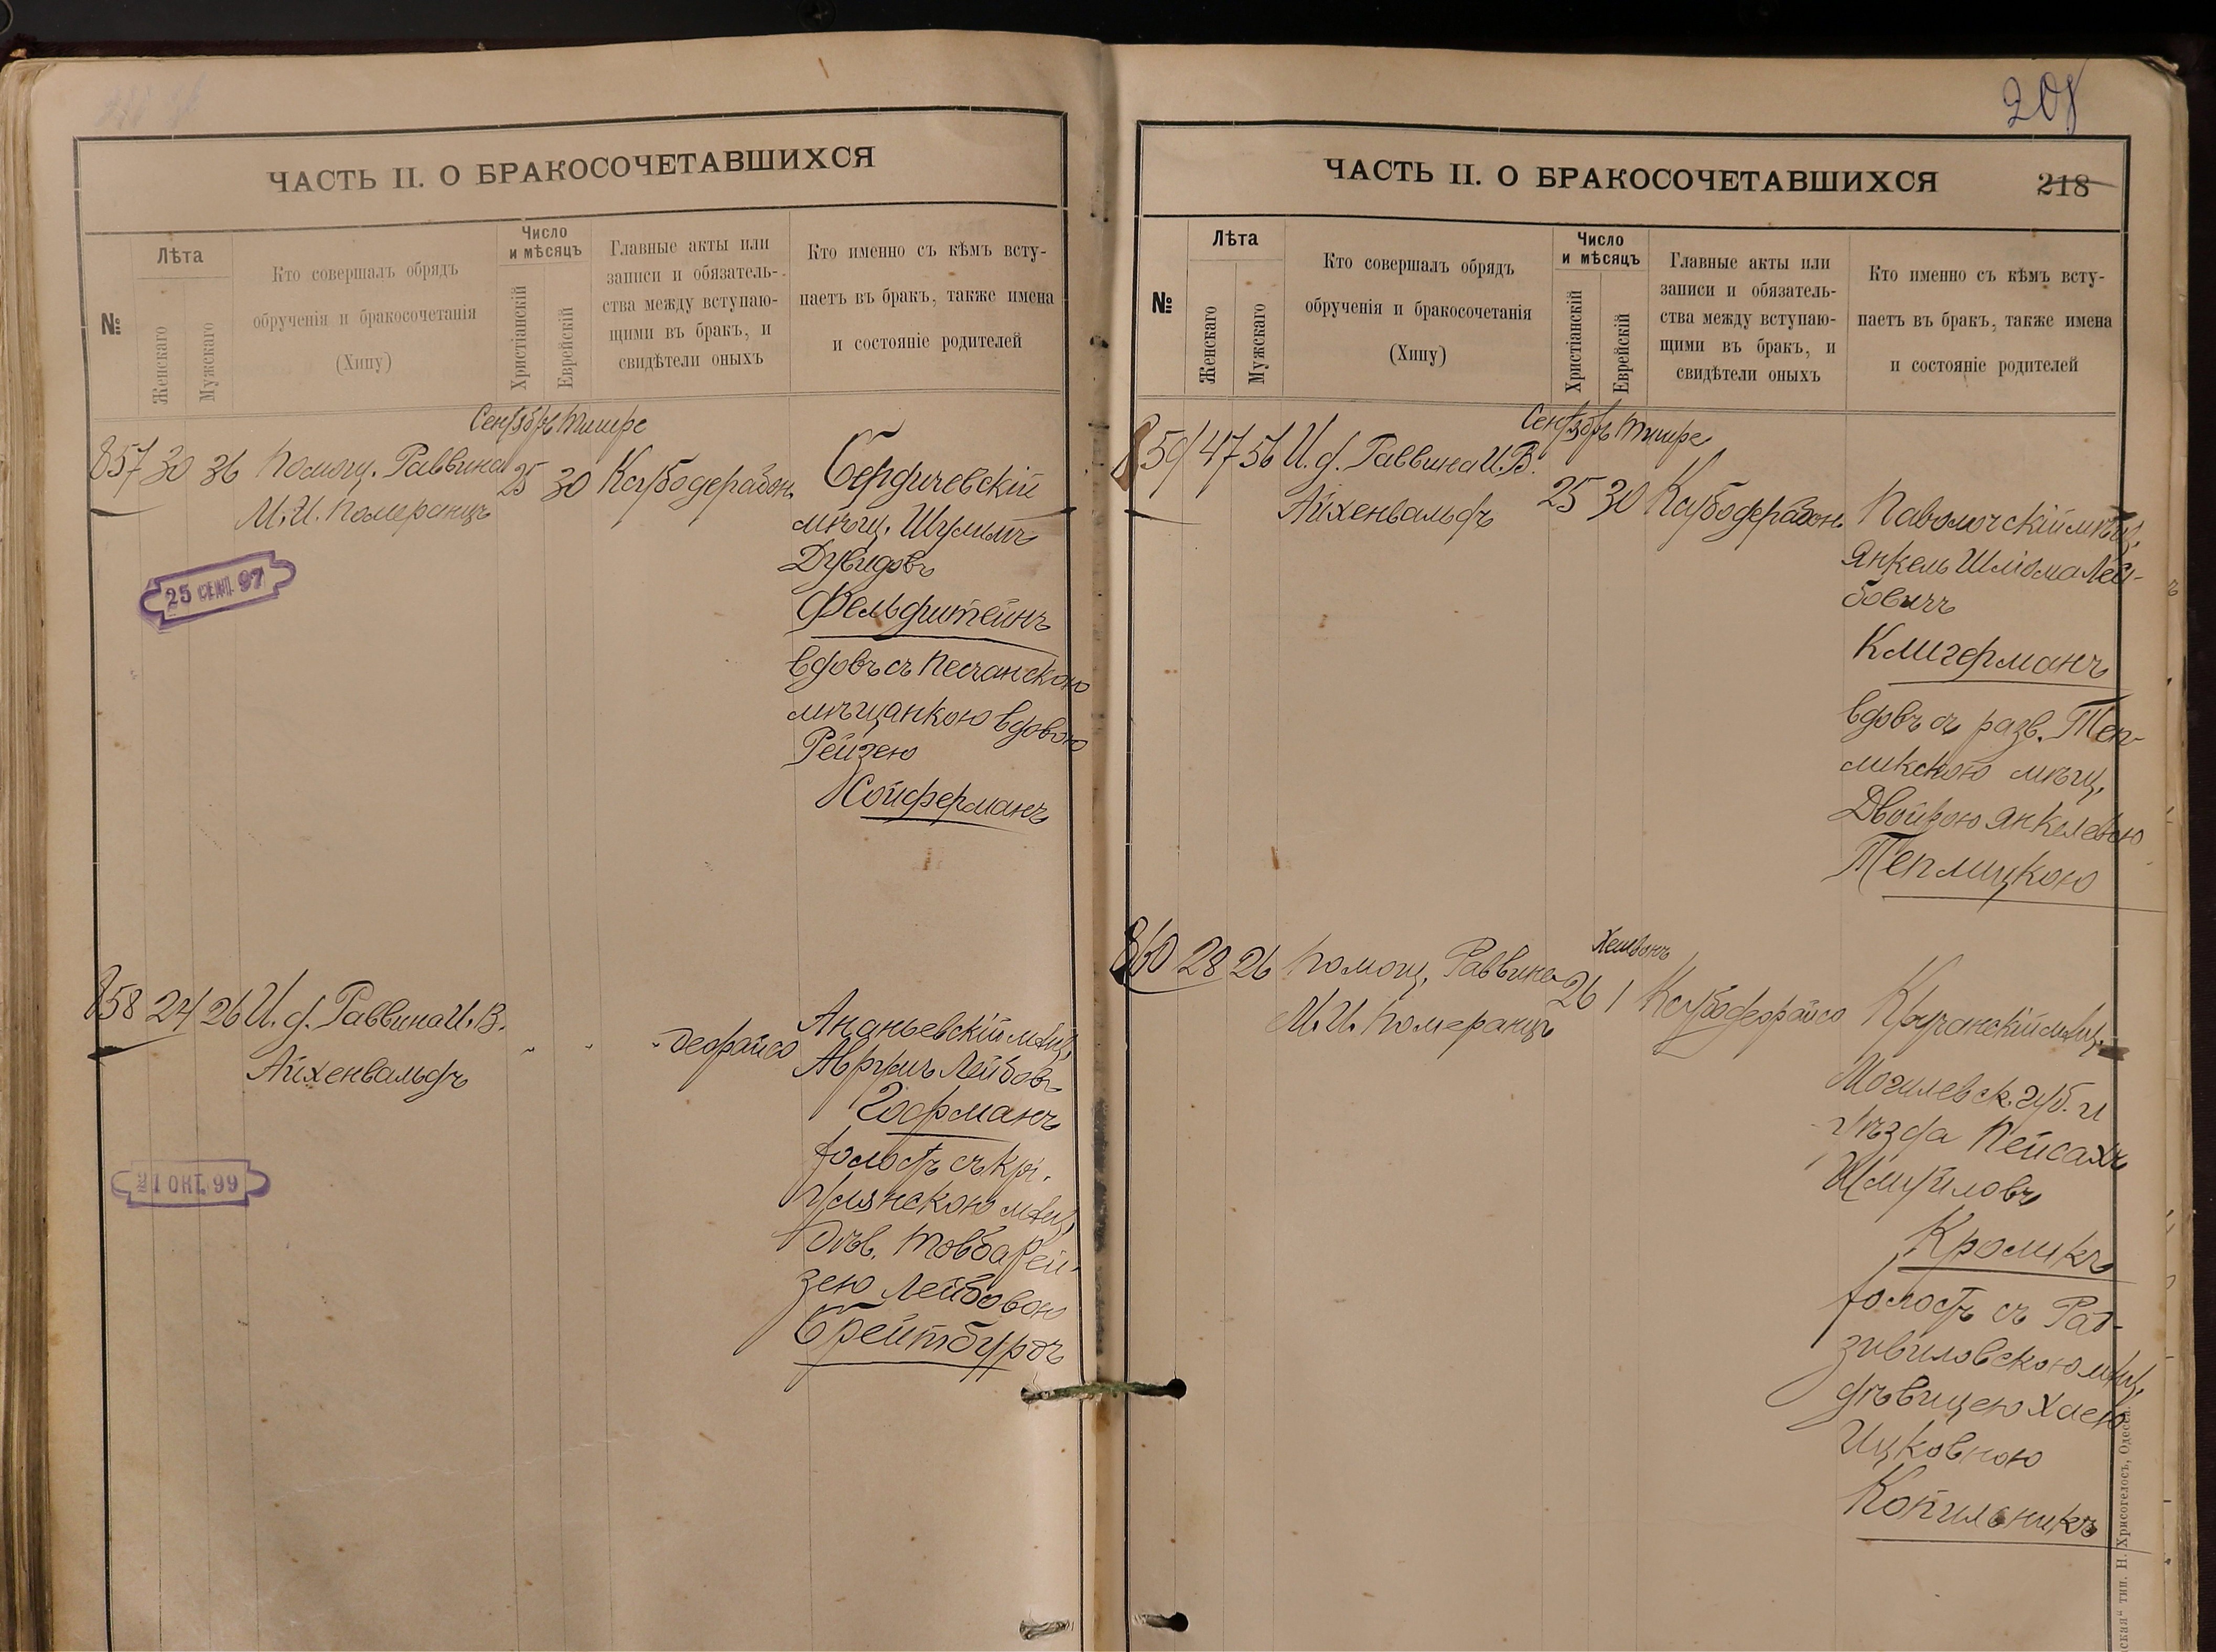 208
ЧАСТЬ II. О БРАКОСОЧЕТАВШИХСЯ
№
Лѣта
Женскаго
Мужскаго
Кто совершалъ обрядъ
обрученія и бракосочетанія
(Хипу)
Число
и мѣсяцъ
Христіанскій
Еврейскій
Главные акты или
записи и обязатель-
ства между вступаю-
щими въ бракъ, и
свидѣтели оныхъ
Кто именно съ кѣмъ всту-
паетъ въ бракъ, также имена
и состояніе родителей
Сентябрь Тишре
857 30 36 Помощ. Раввина 25 30
М. И. Померанцъ
25 СЕНТ. 97
Бердичевскій
мѣщ. Шулимъ
Дувидовъ
Фельдштейнъ
вдовъ съ Песчанскою
мѣщанкою вдовою
Рейзею
Койферманъ
858 24 26 И. д. Раввина И. В. " "
Айхенвальдъ
21 ОКТ. 99
Ананьевскій мѣщ.
Аврумъ Лейбовъ
Гофманъ
холостъ съ
мѣщ.
дѣв. Товба Рей-
зею Лейбовою
Брейтбурдъ
ЧАСТЬ II. О БРАКОСОЧЕТАВШИХСЯ
218
№
Лѣта
Женскаго
Мужскаго
Кто совершалъ обрядъ
обрученія и бракосочетанія
(Хипу)
Число
и мѣсяцъ
Христіанскій
Еврейскій
Главные акты или
записи и обязатель-
ства между вступаю-
щими въ бракъ, и
свидѣтели оныхъ
Кто именно съ кѣмъ всту-
паетъ въ бракъ, также имена
и состояніе родителей
Сентябрь Тишре
859 47 56 И. д. Раввина И. В.
Айхенвальдъ 25 30
Паволочскій мѣщ.
Янкель Шлiома Лей-
бовичъ
Клигерманъ
вдовъ съ разв. Теп-
ликскою мѣщ.
Двойрою Янкелевою
Теплицкою
Хешвонъ
860 28 26 Помощ. Раввина 26 1
М. И. Померанцъ
мѣщ.
Могилевск. губ. и
уѣзда Пейсахъ
Шмуйловъ
Кроликъ
холостъ съ Рад-
зивиловскою мѣщ.
дѣвицею Хаею
Ицковною
Копильникъ
тип. Н. Хрисогелосъ, Одесса.